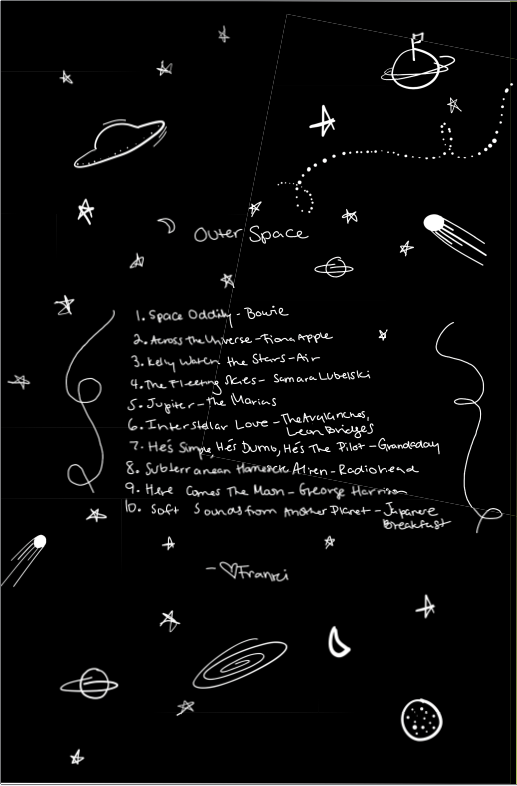 Outer Space
1. Space Oddity - Bowie
2. Across the Universe - Fiona Apple
3. Kelly Watch the Stars - Air
4. The Fleeting Skies - Samara Lubelski
5. Jupiter - The Marias
6. Interstellar Love - The Avalanches,
Leon Bridges
7. He's Simple, He's Dumb, He's The Pilot - Grandaday
8. Subterranean Homesick Alien - Radiohead
9. Here Comes The Moon - George Harrison
10. Soft Sounds from Another Planet - Japanese
Breakfast
- ♡Franki